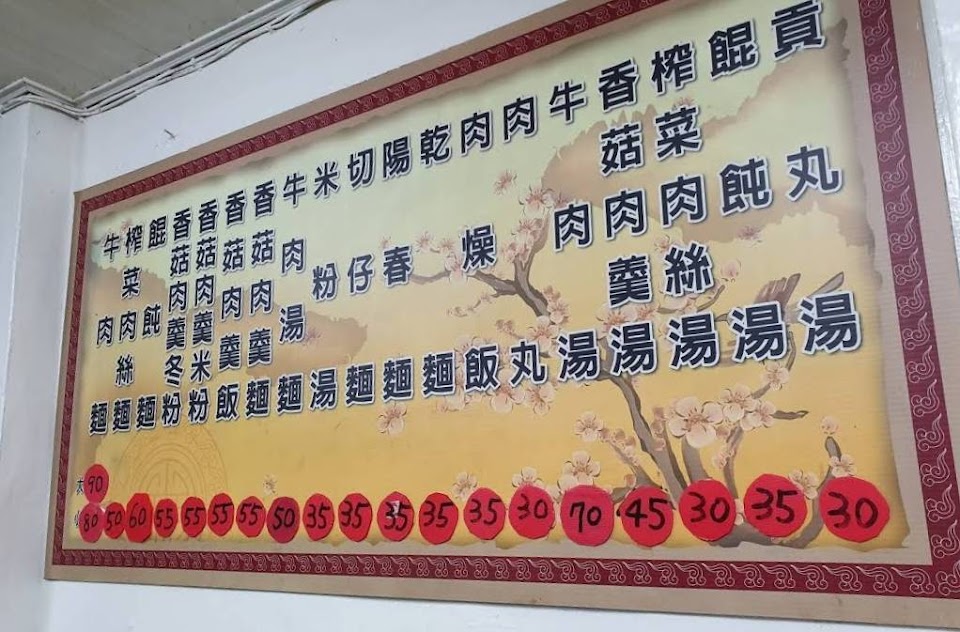 貢丸湯 30
餛飩湯 35
榨菜肉絲湯 30
香菇肉羹湯 45
牛肉湯 70
肉丸 30
肉燥飯 35
乾麵 35
陽春麵 35
切仔麵 35
米粉湯 35
牛肉湯麵 50
香菇肉羹麵 55
香菇肉羹飯 55
香菇肉羹米粉 55
香菇肉羹冬粉 55
餛飩麵 60
榨菜肉絲麵 50
牛肉麵 大90 小80